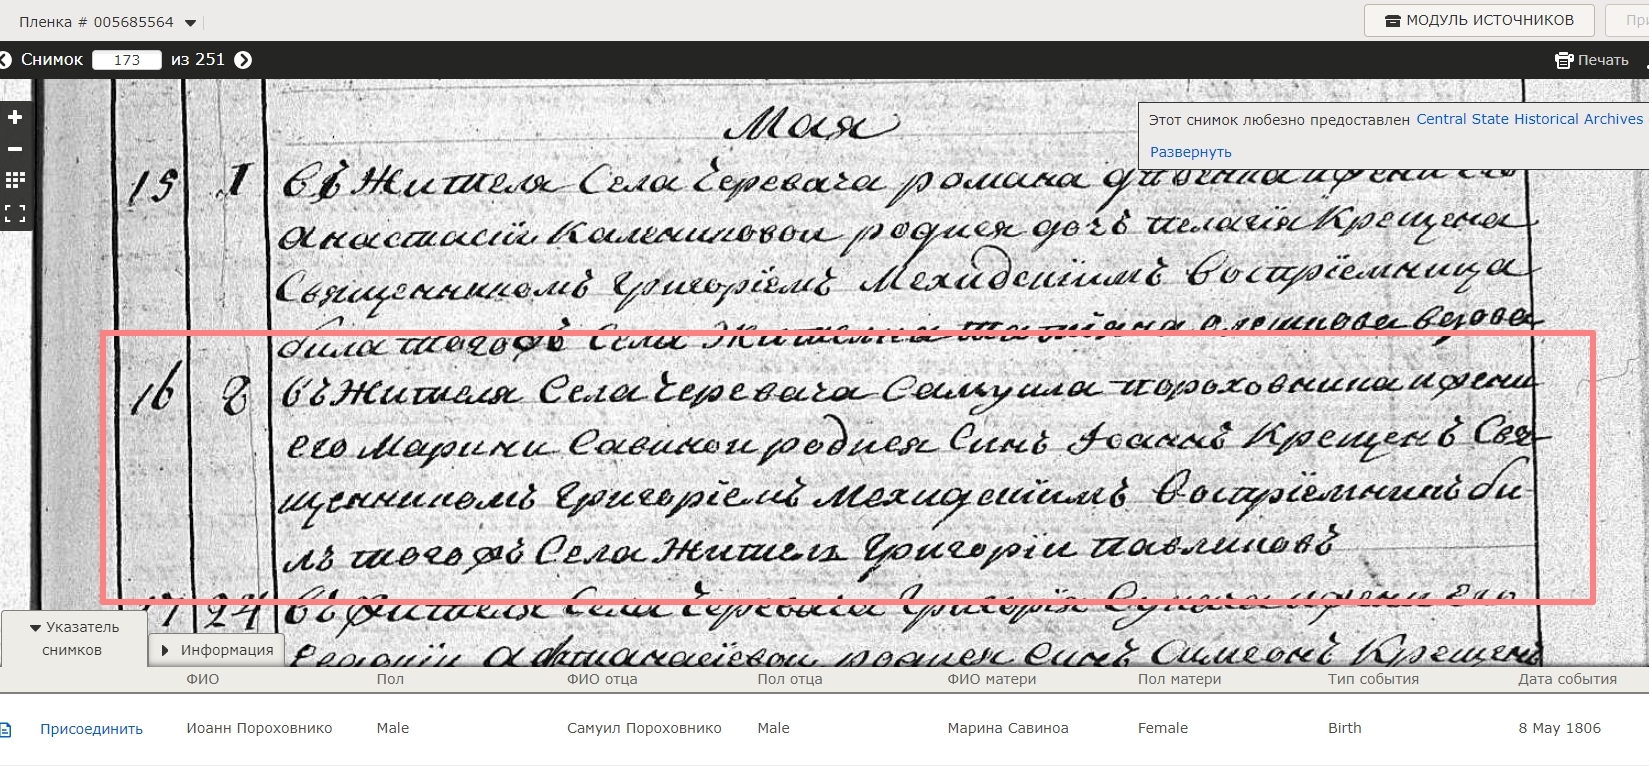 Пленка # 005685564
МОДУЛЬ ИСТОЧНИКОВ
При
Снимок 173 из 251
Печать
Этот снимок любезно предоставлен Central State Historical Archives
Развернуть
Мая
15 1 въ Жителя Села Черевача романа и жени его
анастасіи Калениковои родися дочъ пелагія Крещена
Священникомъ Григоріемъ Мехидскіимъ Воспріемница
била тогожъ Села Жителка
16 8 въ Жителя Села Черевача Самуила пороховника и жени
его Марини Савинои родися Синъ Іоаннъ Крещенъ Свя
щенникомъ Григоріемъ Мехидскіимъ Воспріемникъ би
лъ тогожъ Села Житель Григоріи павликовъ
17 24 въ жителя Села Черевача Григорія и жени Его
Афтанасіевои родися Синъ Симеонъ Крещенъ
Указатель
снимков
Информация
ФИО Пол ФИО отца Пол отца ФИО матери Пол матери Тип события Дата события
Присоединить Иоанн Пороховнико Male Самуил Пороховнико Male Марина Савиноа Female Birth 8 May 1806